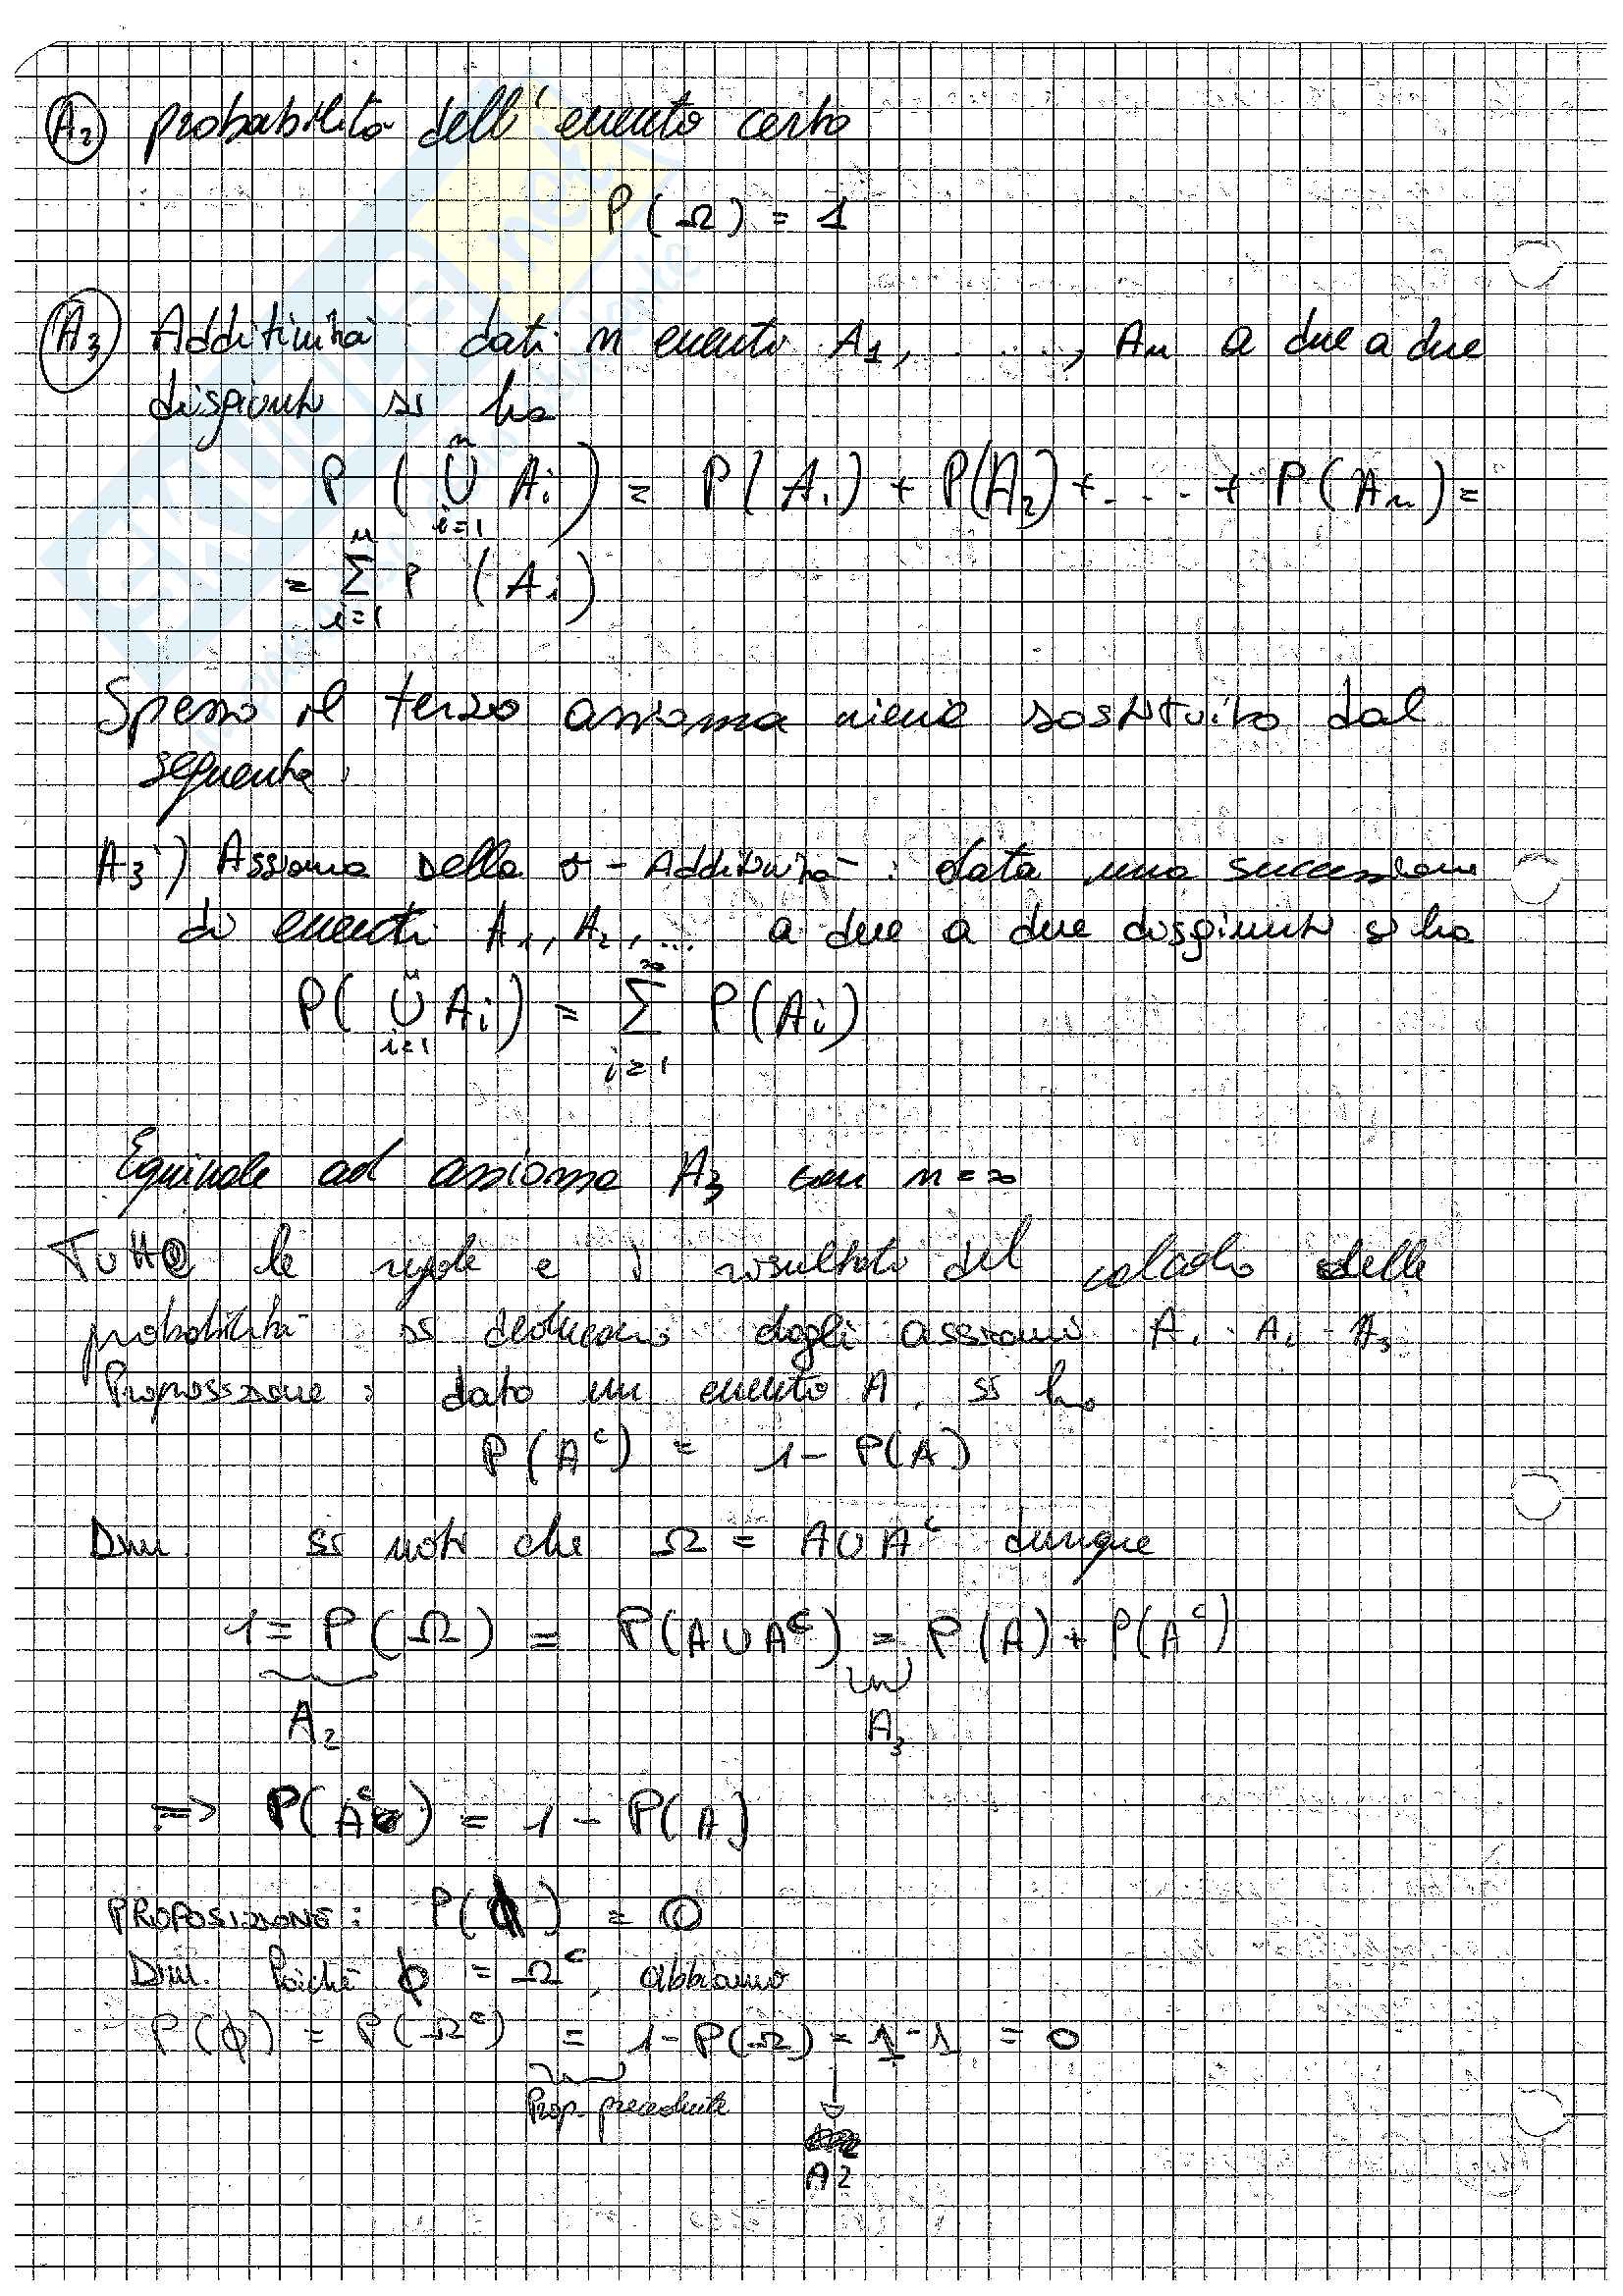 A2 probabilità dell'evento certo
P(Ω) = 1
A3 Additività: dati n eventi A1, ....., An a due a due
disgiunti si ha
P(⋃_{i=1}^{n} Ai) = P(A1) + P(A2) + .... + P(An) =
= ∑_{i=1}^{n} P(Ai)
Spesso il terzo assioma viene sostituito dal
seguente:
A3') Assioma della σ-Additività: data una successione
di eventi A1, A2, ... a due a due disgiunti si ha
P(⋃_{i=1}^{n} Ai) = ∑_{i=1}^{∞} P(Ai)
Equivale ad assioma A3 con n = ∞
Tutte le regole e i risultati del calcolo delle
probabilità si deducono dagli assiomi A1 A2 A3
Proposizione: dato un evento A, si ha
P(A^c) = 1 - P(A)
Dim. si noti che Ω = A∪A^c dunque
1 = P(Ω) = P(A∪A^c) = P(A) + P(A^c)
A2 A3
=> P(A^c) = 1 - P(A)
PROPOSIZIONE: P(ϕ) = 0
Dim. Poiché ϕ = Ω^c, abbiamo
P(ϕ) = P(Ω^c) = 1 - P(Ω) = 1 - 1 = 0
Prop. precedente
A2